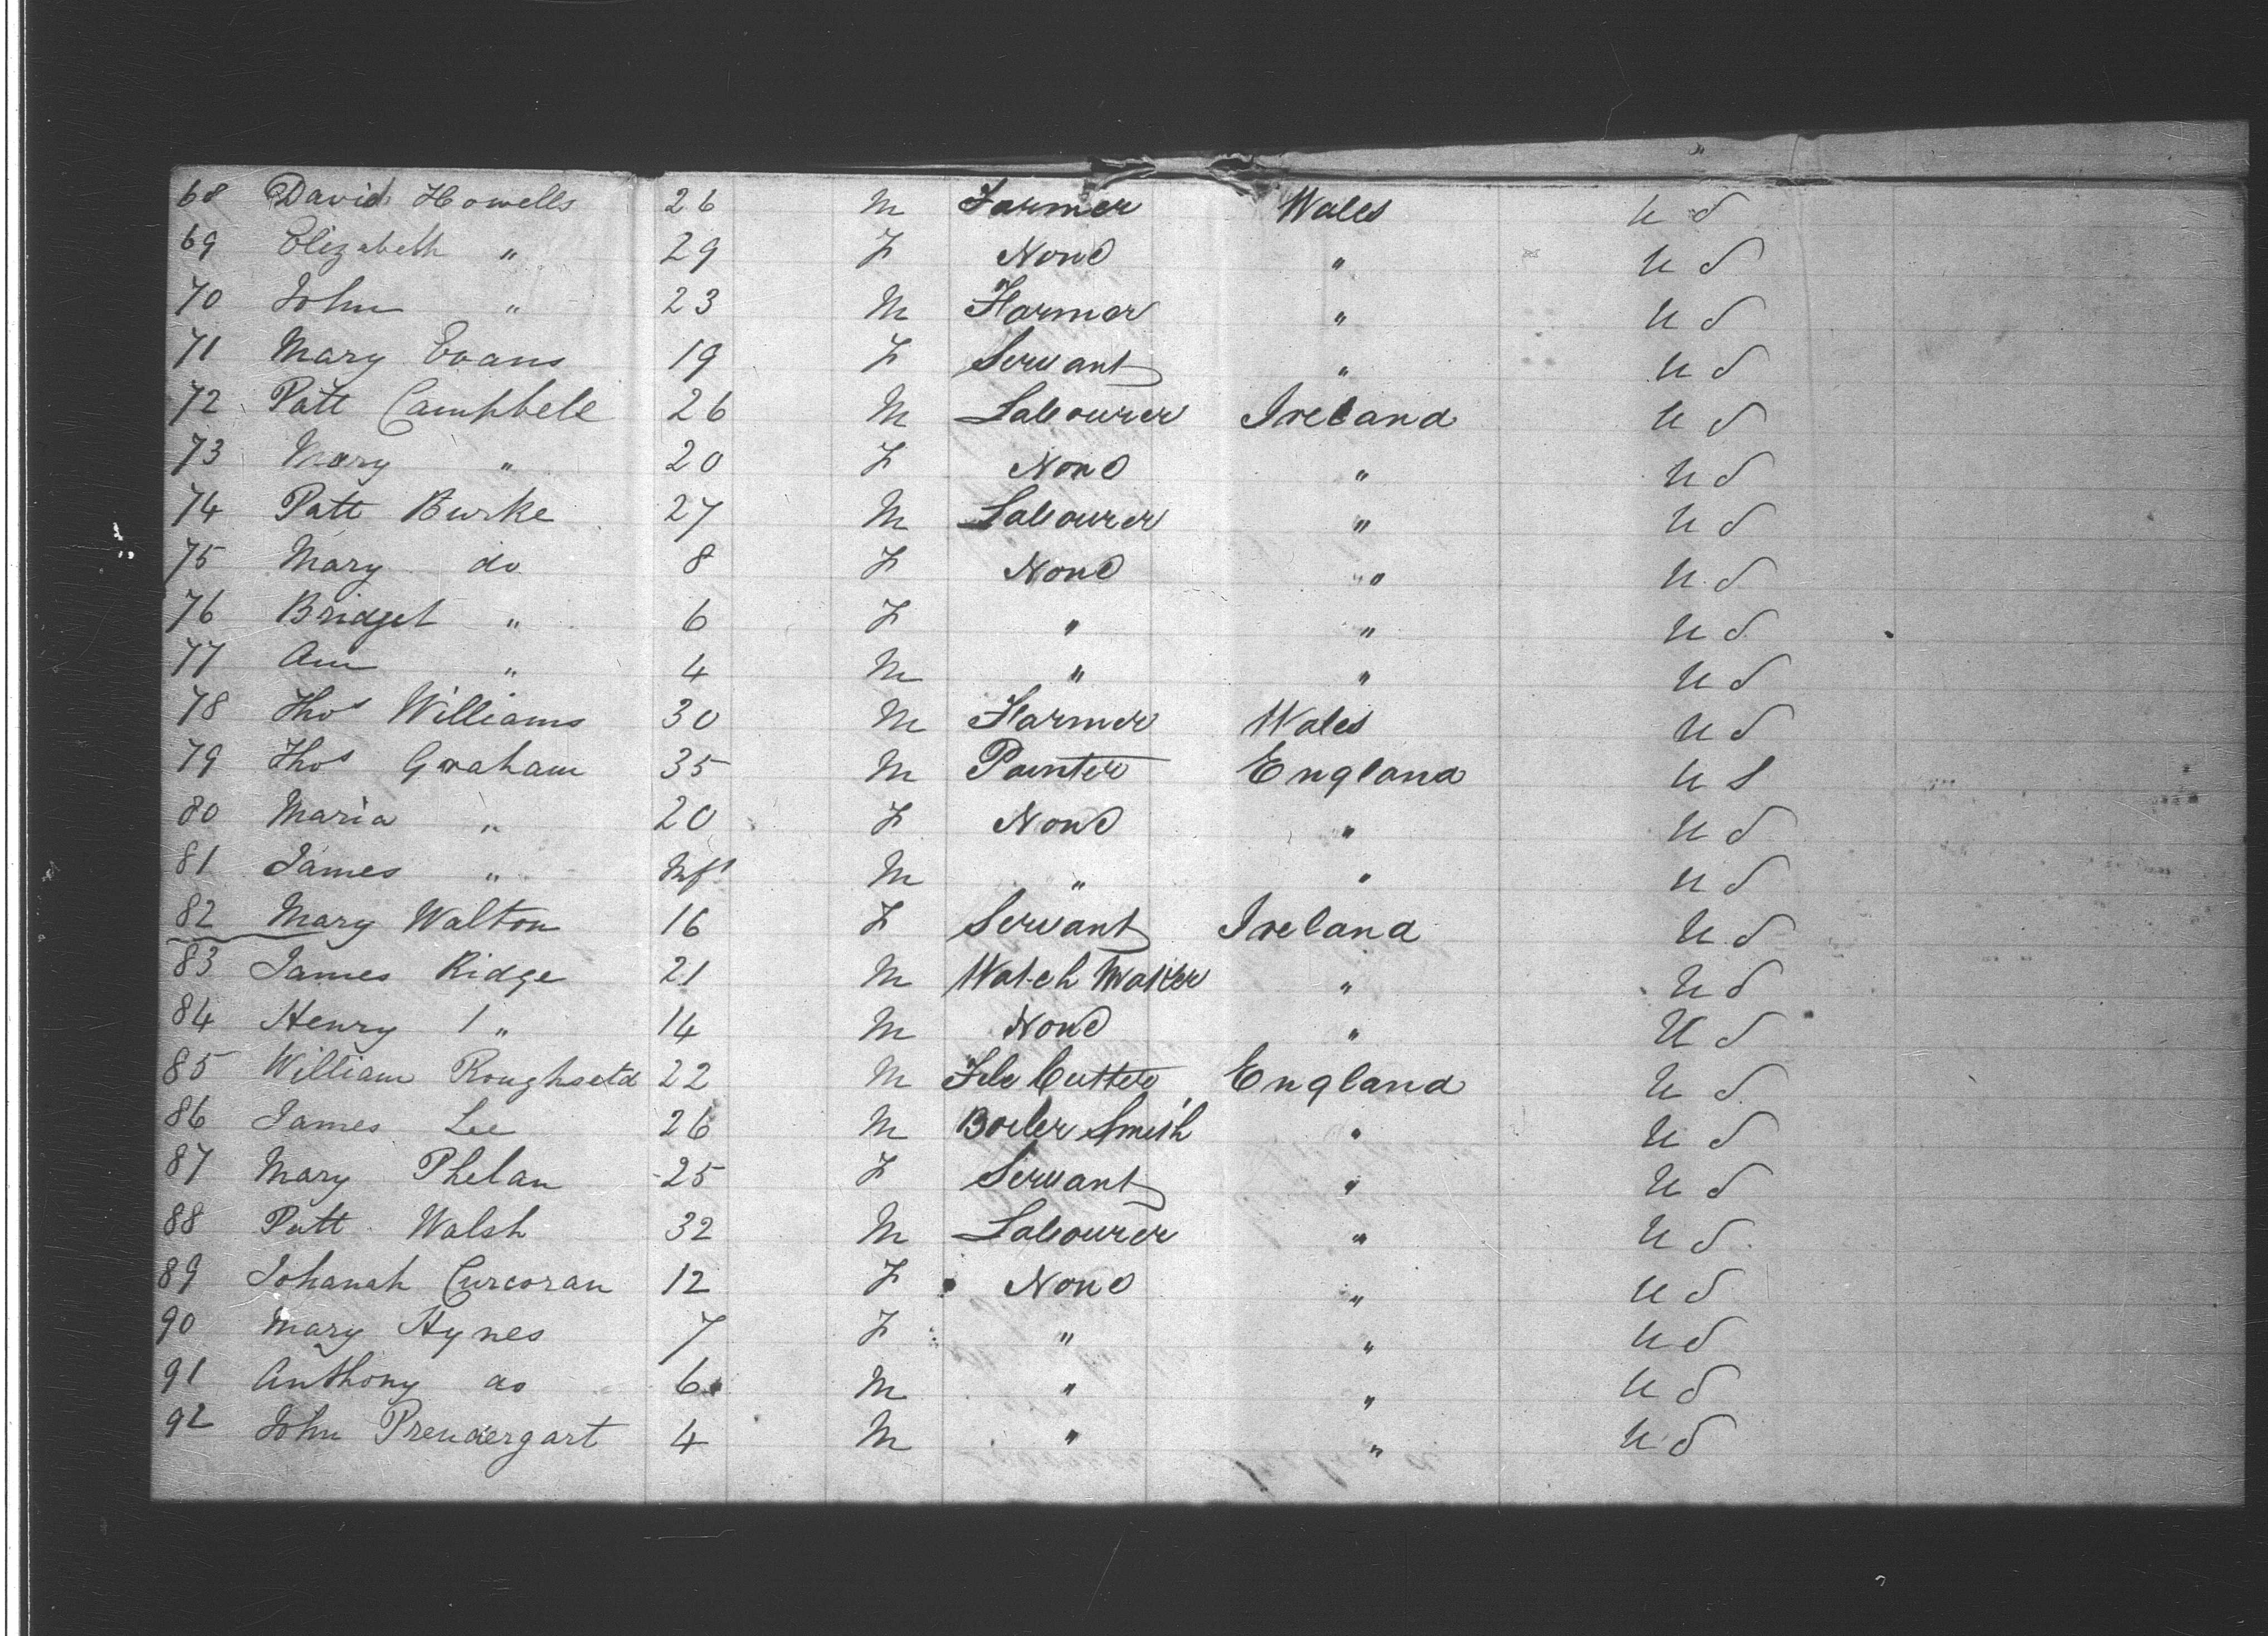 68 David Howells 26 M Farmer Wales U S
69 Elizabeth " 29 F None " U S
70 John " 23 M Farmer " U S
71 Mary Evans 19 F Servant " U S
72 Patt Campbell 26 M Labourer Ireland U S
73 Mary " 20 F None " U S
74 Patt Burke 27 M Labourer " U S
75 Mary do 8 F None " U S
76 Bridget " 6 F " " U S
77 Ann " 4 M " " U S
78 Thos Williams 30 M Farmer Wales U S
79 Thos Graham 35 M Painter England U S
80 Maria " 20 F None " U S
81 James " Inft M " " U S
82 Mary Walton 16 F Servant Ireland U S
83 James Ridge 21 M Watch Maker " U S
84 Henry " 14 M None " U S
85 William 22 M File Cutter England U S
86 James Lee 26 M Boiler Smith " U S
87 Mary Phelan 25 F Servant " U S
88 Patt Walsh 32 M Labourer " U S
89 Johanah Curcoran 12 F None " U S
90 Mary Hynes 7 F " " U S
91 Anthony do 6 M " " U S
92 John Prendergart 4 M " " U S